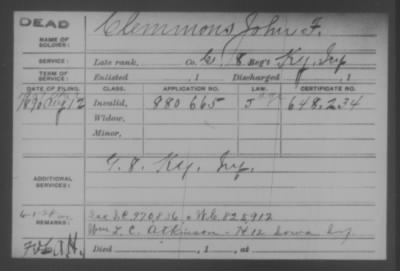 DEAD
NAME OF SOLDIER: Clemmons, John F.
SERVICE: Late rank, Co. G, 8 Reg't Ky. Inf.
TERM OF SERVICE: Enlisted , 1 Discharged , 1
DATE OF FILING. CLASS. APPLICATION NO. LAW. CERTIFICATE NO.
1890 Aug 12 Invalid, 880 665 J 648,234
Widow,
Minor,
ADDITIONAL SERVICES: Ky. Inf.
REMARKS: See I.C. 970,836 & W.C. 825,912
Wm L. C. Atkinson - H 12 Iowa Inf.
Died , 1 , at